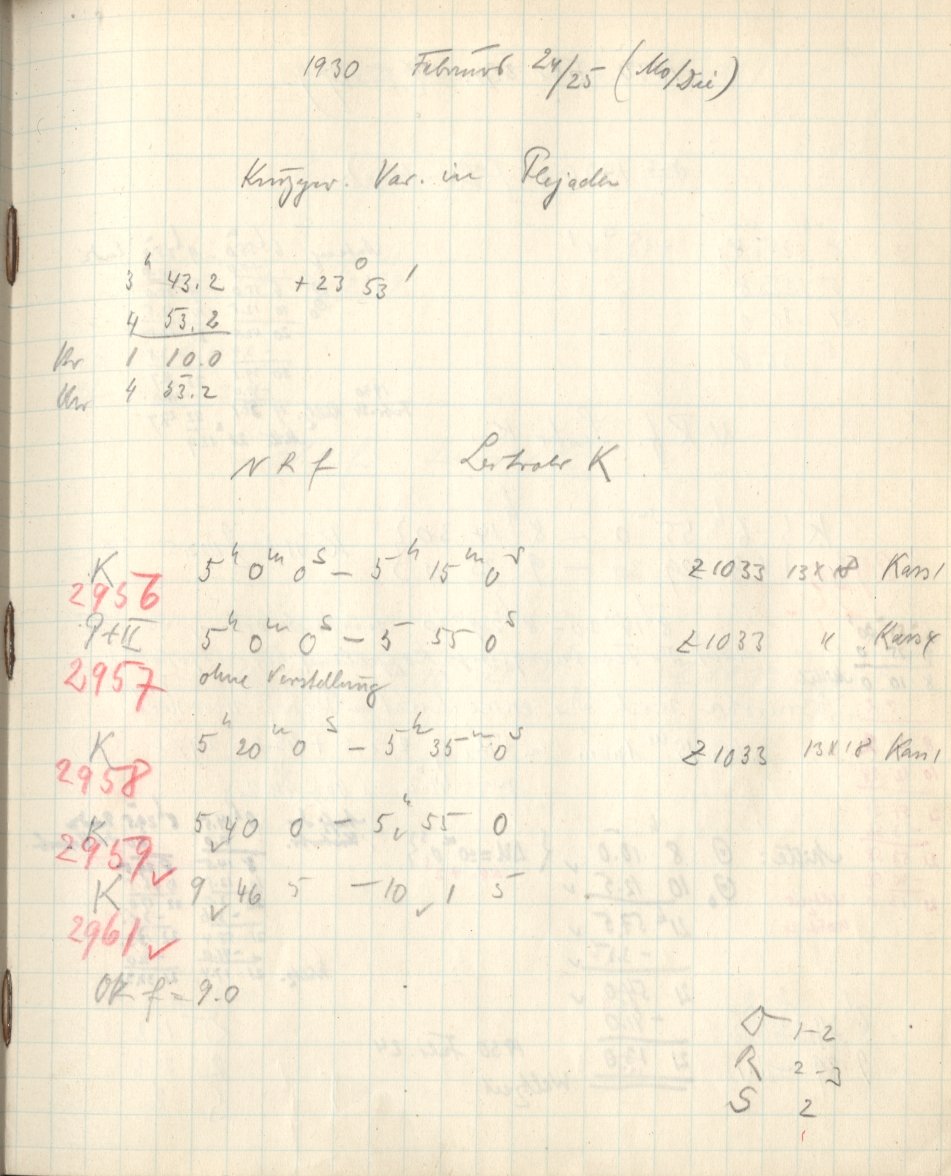 1930 Februar 24/25 (Mo/Die)
Var. in Plejaden
3ʰ 43.2 +23° 53'
4 53.2
1 10.0
4 53.2
N R f Leitrohr K
K 5ʰ 0ᵐ 0ˢ – 5ʰ 15ᵐ 0ˢ Z1033 13×18 Kass 1
2956
P+II 5ʰ 0ᵐ 0ˢ – 5 55 0ˢ Z1033 " Kass 4
2957 ohne Verstellung
K 5ʰ 20ᵐ 0ˢ – 5ʰ 35ᵐ 0ˢ Z1033 13×18 Kass 1
2958
K 5 40 0 – 5ʰ 55 0
2959 ✓
K 9 46 5 – 10 1 5
2961 ✓
OK f = 9.0
1-2
R 2-3
S 2